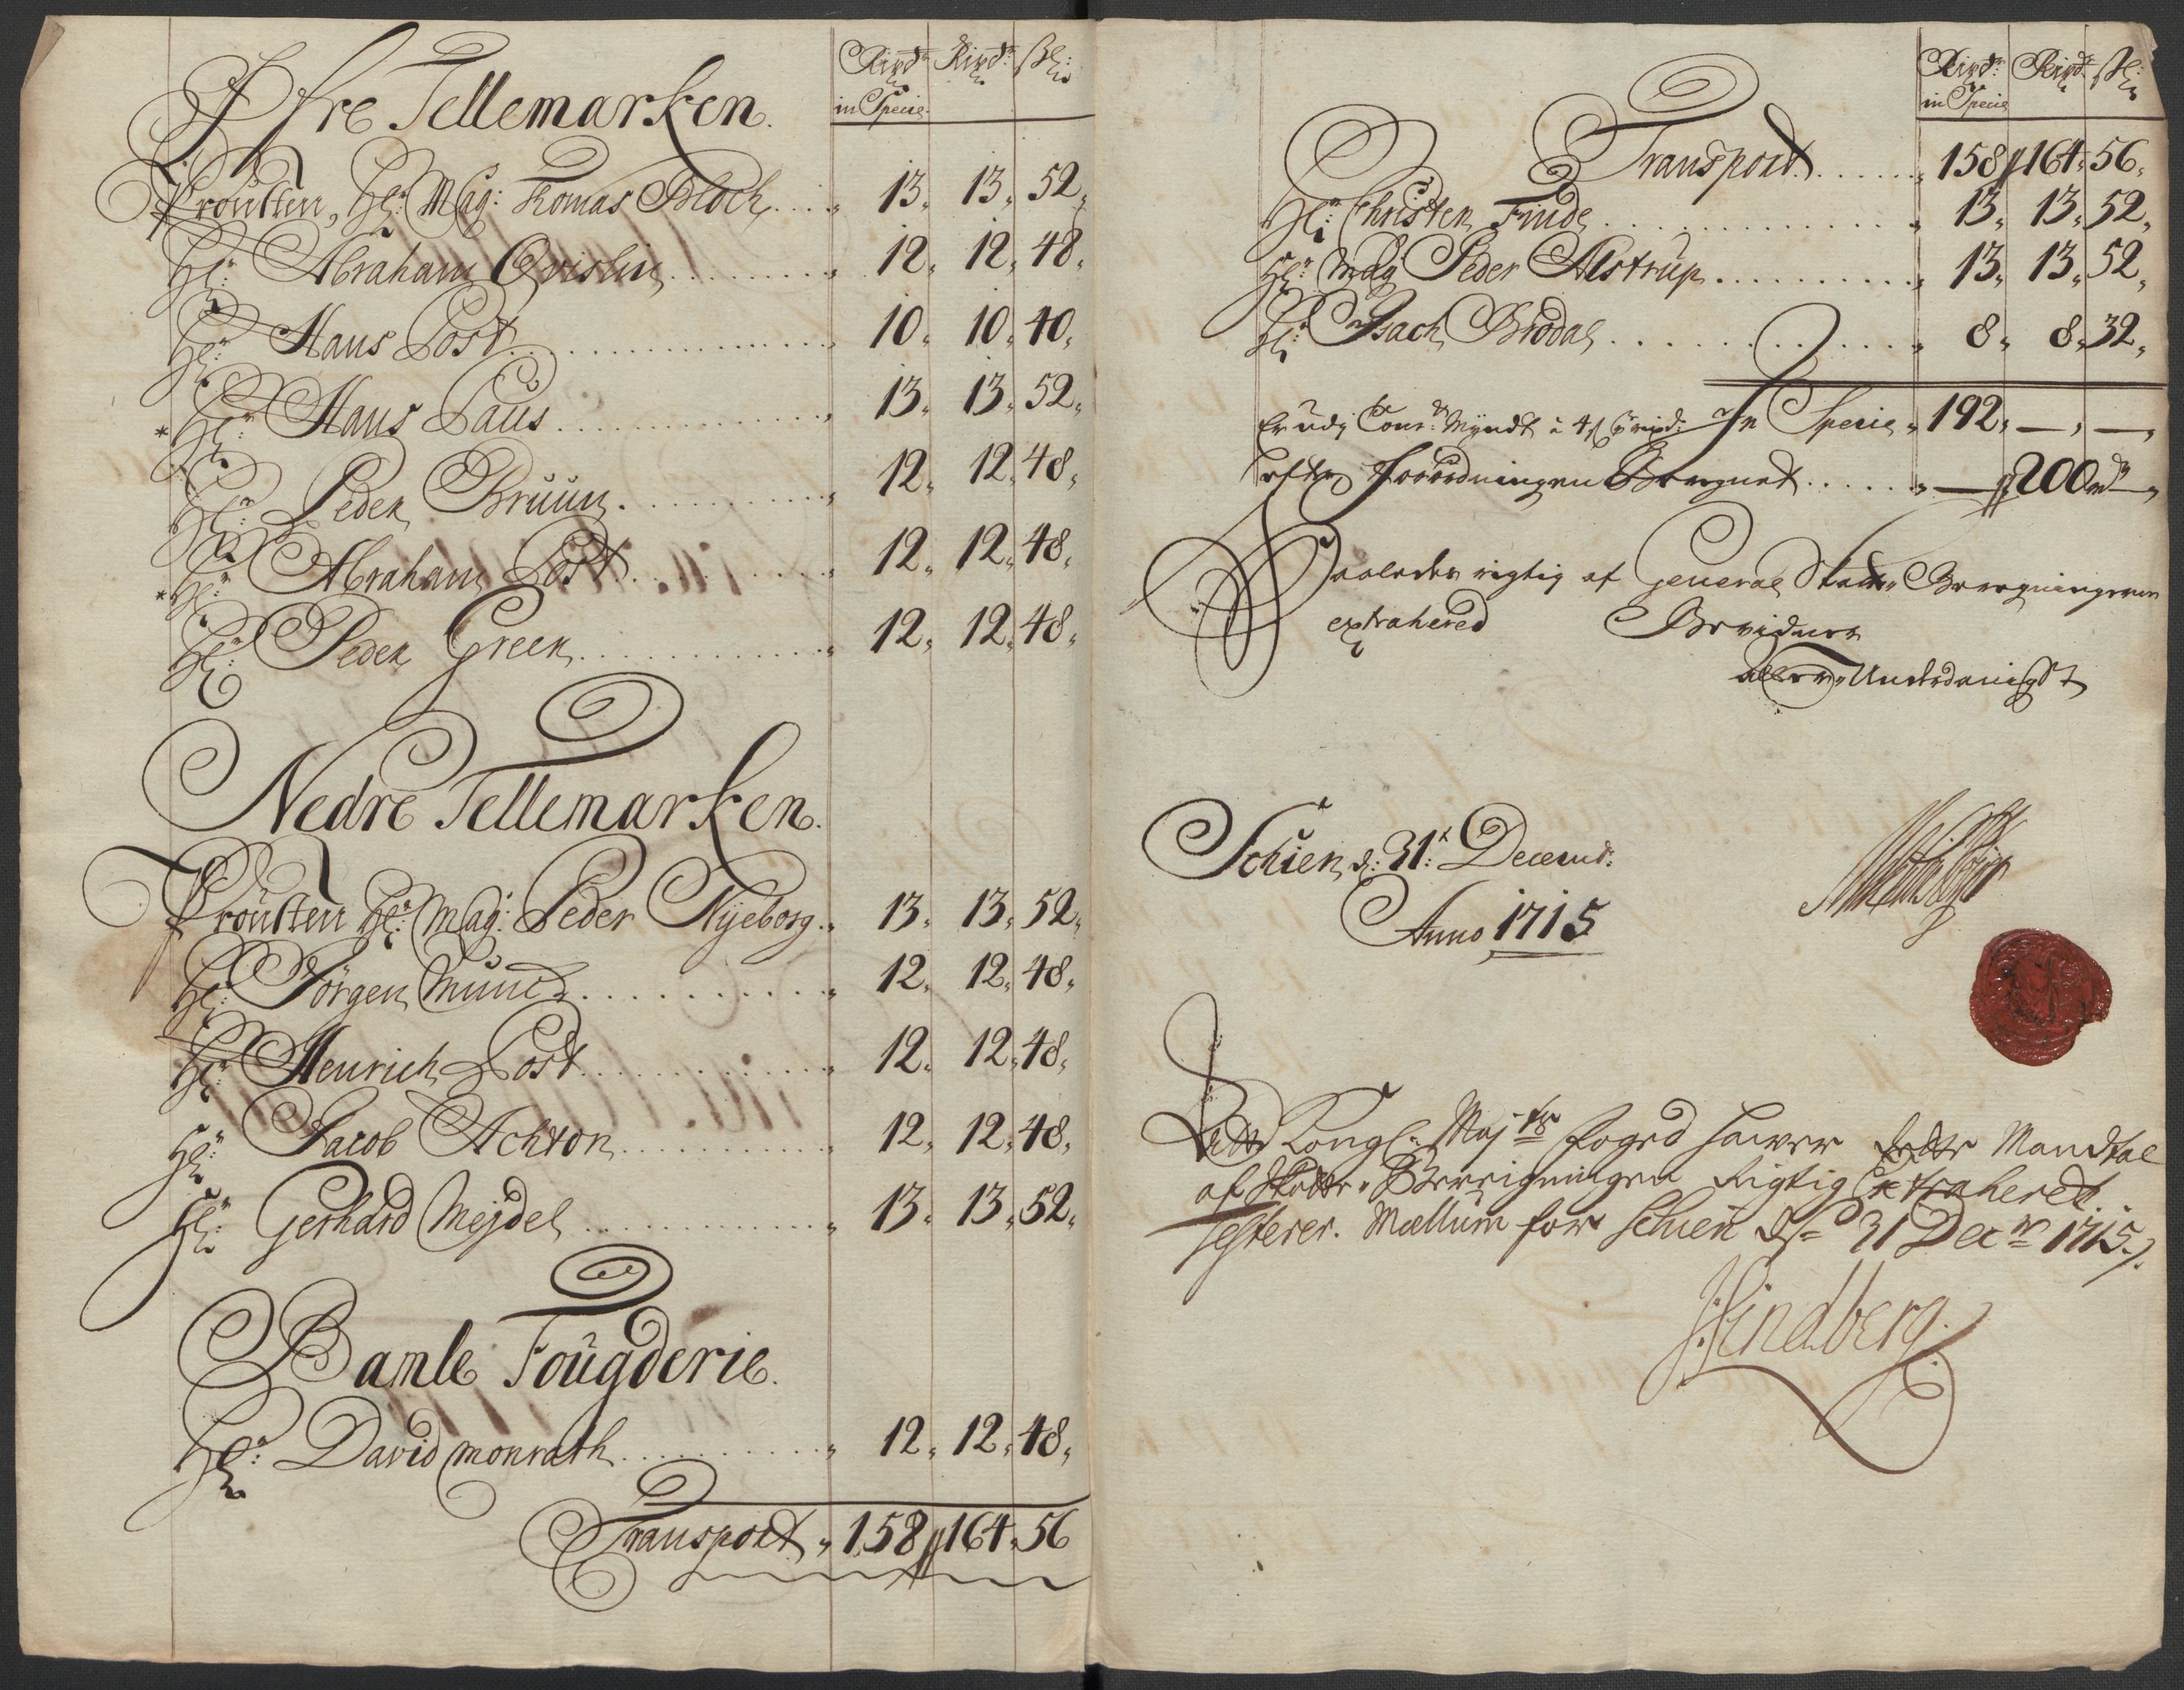 Rixdr Rixdr ß:
in Specie.
Öfre Tellemarken.
Prousten, Hr: Mag: Thomas Bloch . . . 13. 13. 52.
Hr: Abraham Qvislin . . . 12. 12. 48.
Hr: Hans Lost . . . 10. 10. 40.
* Hr: Hans Paus . . . 13. 13. 52.
Hr: Peder Bruun . . . 12. 12. 48.
* Hr: Abraham Lost . . . 12. 12. 48.
Hr: Peder Green . . . 12. 12. 48.
Nedre Tellemarken.
Prousten Hr: Mag: Peder Nyeborg . . 13. 13. 52.
Hr: Jörgen Munch . . . 12. 12. 48.
Hr: Henrich Lost . . . 12. 12. 48.
Hr: Jacob Achton . . . 12. 12. 48.
Hr: Gerhard Mejdel . . . 13. 13. 52.
Bamle Fougderie.
Hr: David Monrath . . . 12. 12. 48.
Transport . 158 // 164. 56
Rixdr: Rixdr ß:
in Specie
Transport . . . 158 // 164. 56.
Hr: Christen Finde . . . 13. 13. 52.
Hr: Mag Peder Alstrup . . . 13. 13. 52.
Hr: Isach Brodal . . . 8. 8. 32.
Er udj Cour: Myndt à 4 ß In Specie . 192. — . — .
efter Forordningen Beregnet . . . — // 200 rdr — .
Saaledes rigtig af General Skatte Beregningerne
extrahered Bevidner
aller Underdanigst
Schien d: 31t Decemb:
Anno 1715
At Kongl: Maj:ts foged haver dette Mandtal
af Skatte Beregningen Rigtig Extraheret
testerer. Mællum for Schien d: 31 Decr 1715.
Lindberg.